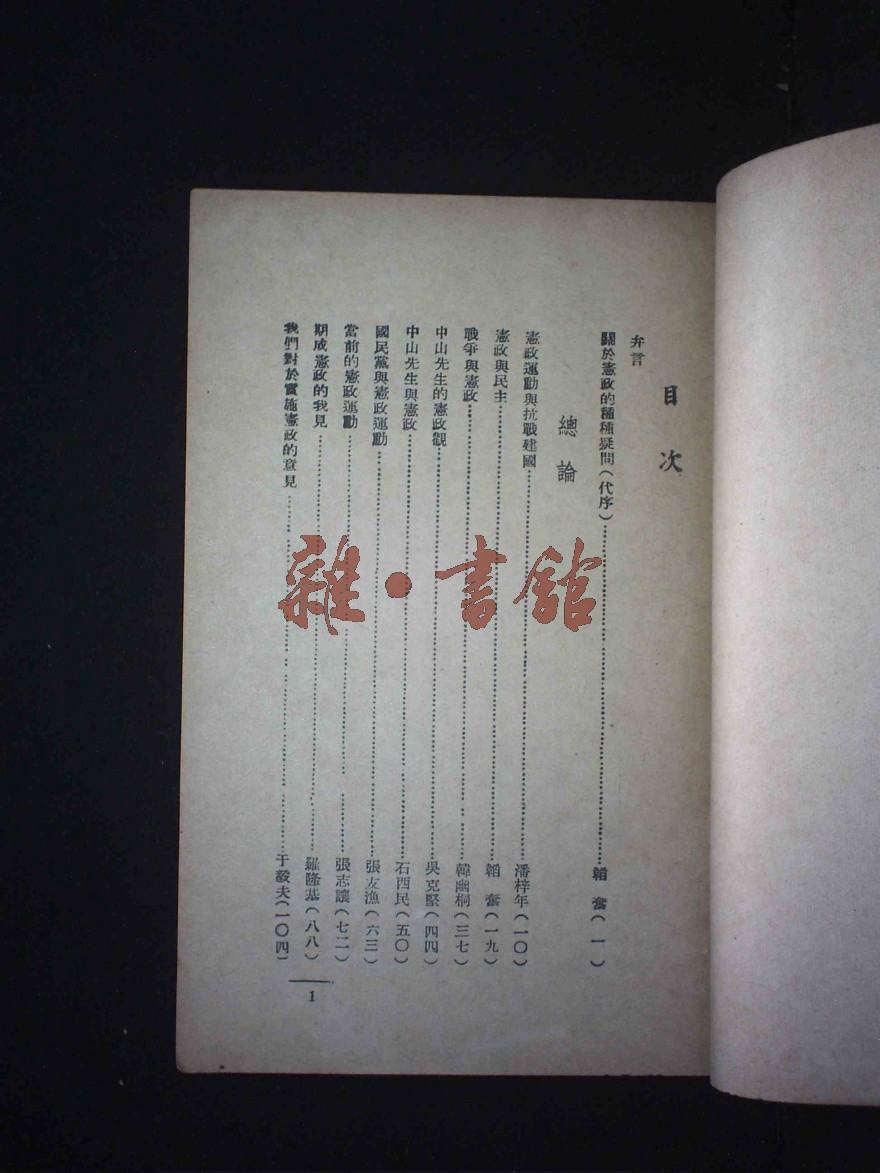 目次
弁言
關於憲政的種種疑問（代序）……韜奮（一）
總論
憲政運動與抗戰建國……潘梓年（一〇）
憲政與民主……韜奮（一九）
戰爭與憲政……韓幽桐（三七）
中山先生的憲政觀……吳克堅（四四）
中山先生與憲政……石西民（五〇）
國民黨與憲政運動……張友漁（六三）
當前的憲政運動……張志讓（七二）
期成憲政的我見……羅隆基（八八）
我們對於實施憲政的意見……于毅夫（一〇四）
1
雜·書館